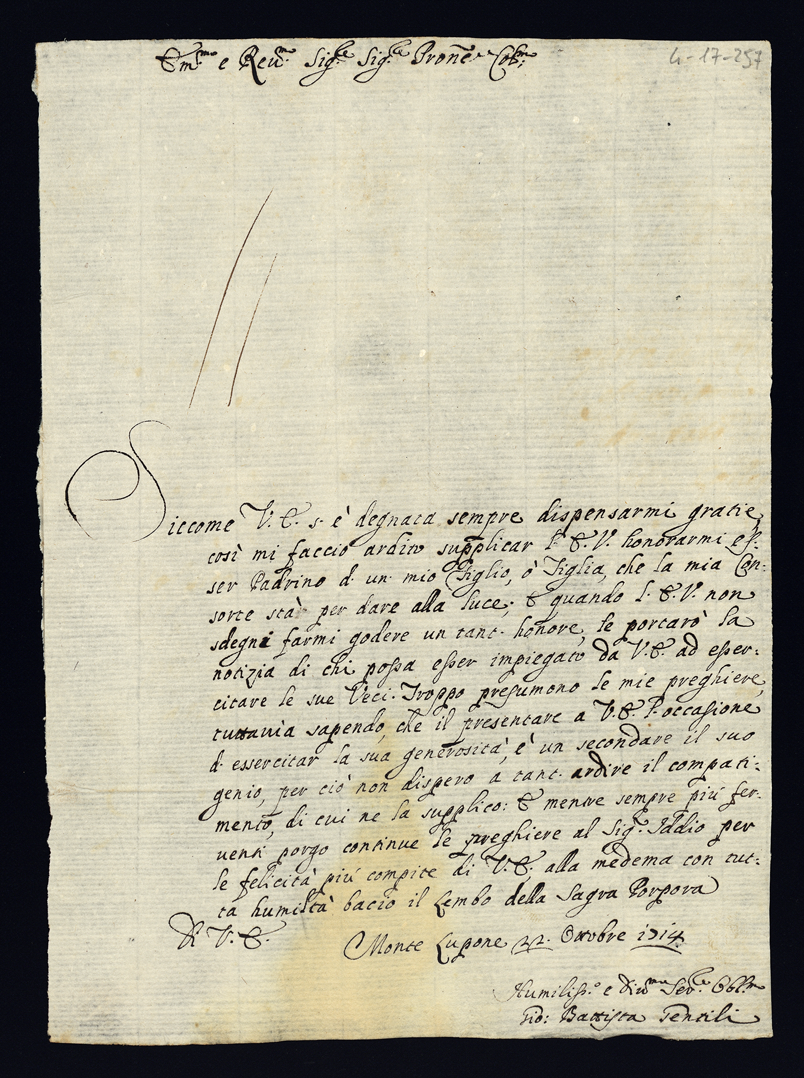 Em.mo e Reu.mo Sig.re Sig.re Pron̄e Col.mo
4-17-257
Siccome V. E. s' è degnata sempre dispensarmi gratie,
così mi faccio ardito supplicar l' E. V. honorarmi es-
ser Padrino d' un' mio Figlio, ò Figlia, che la mia Con-
sorte stà per dare alla luce; E quando l' E. V. non
sdegni farmi godere un tant' honore, le portarò la
notizia di chi possa esser impiegato da V. E. ad esser-
citare le sue Veci. Troppo presumono le mie preghiere,
tuttauia sapendo, che il presentare a V. E. l' occasione
d' essercitar la sua generosità, è un secondare il suo
genio, per ciò non dispero a tant' ardire il compati-
mento, di cui ne la supplico: E mentre sempre più fer-
uenti porgo continue le preghiere al Sig.re Iddio per
le felicità più compite di V. E. alla medema con tut-
ta humiltà bacio il Lembo della Sagra Porpora
Di V. E.
Monte Lupone 22. Ottobre 1714
Humiliss.o e Diu.mo Ser.re Obl.mo
Gio: Battista Gentili